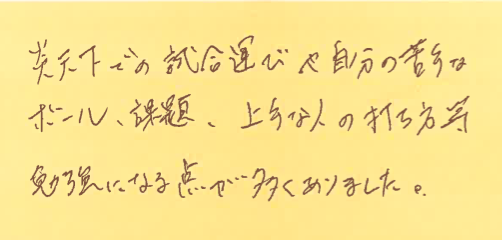 炎天下での試合運びや自分の苦手な
ボール、課題、上手な人の打ち方等
勉強になる点が多くありました。